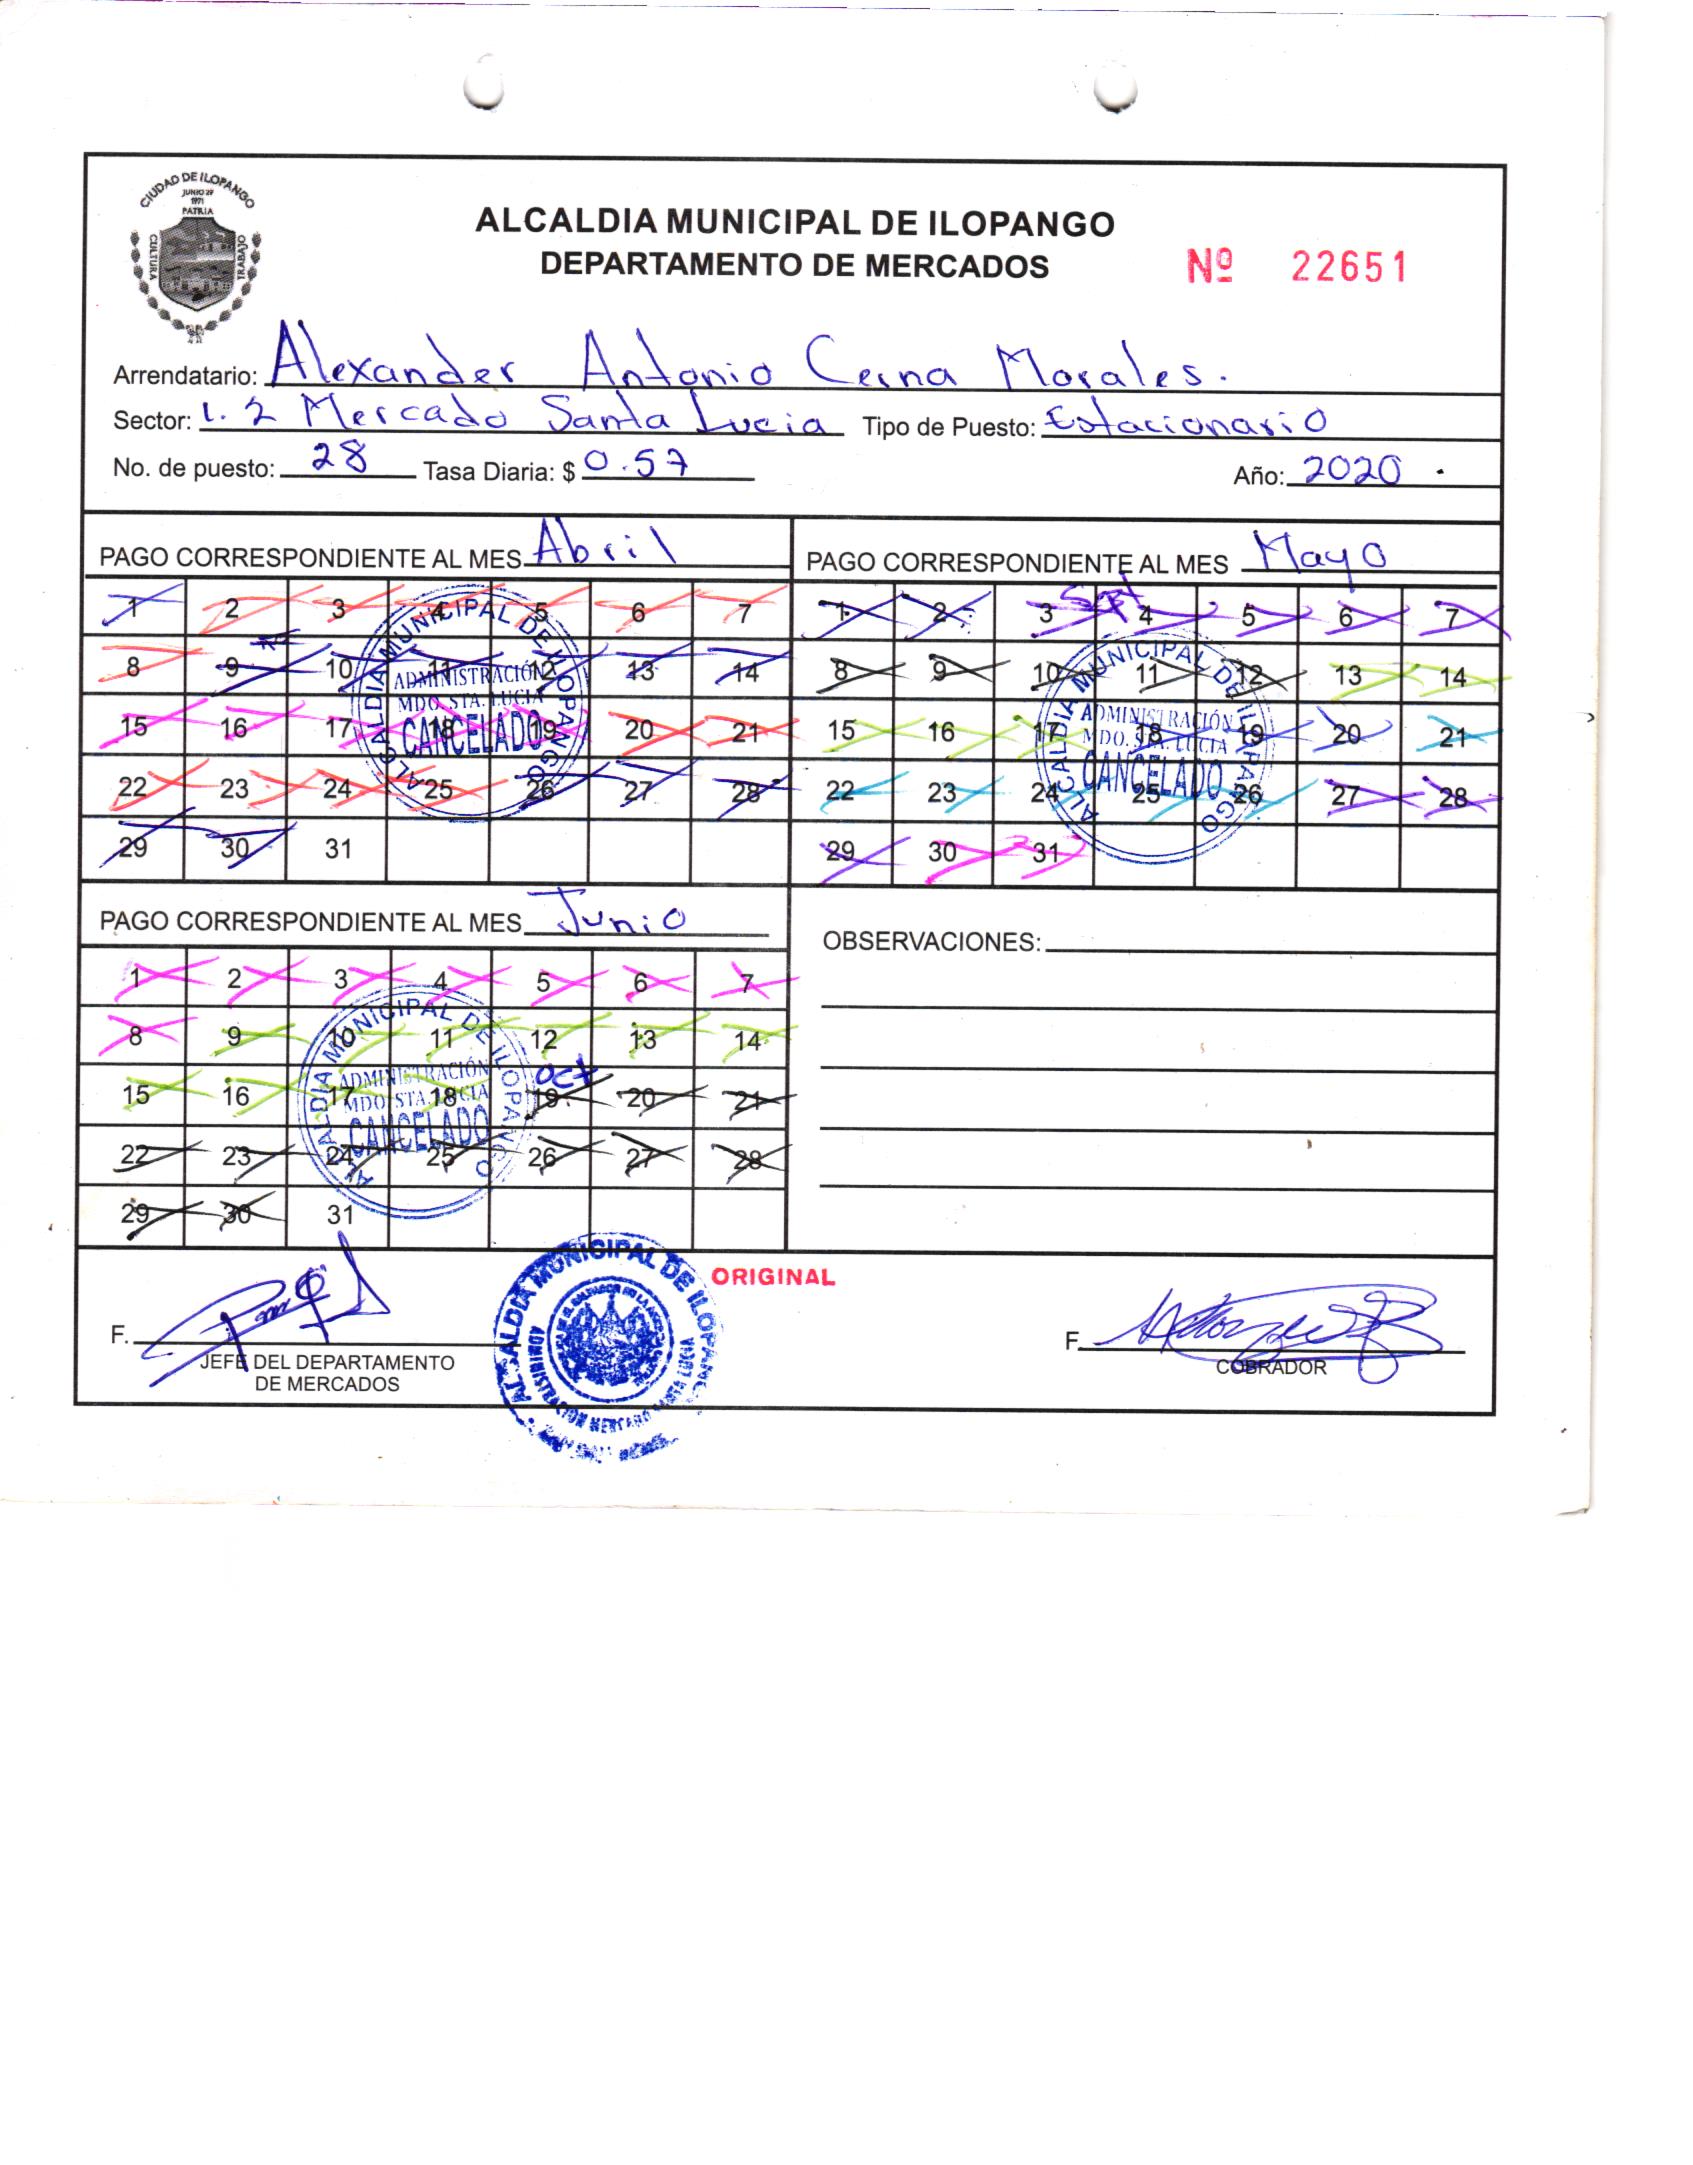 CIUDAD DE ILOPANGO
JUNIO 29
1971
PATRIA
CULTURA
TRABAJO
ALCALDIA MUNICIPAL DE ILOPANGO
DEPARTAMENTO DE MERCADOS
Nº 22651
Arrendatario: Alexander Antonio Cerna Morales.
Sector: 1.2 Mercado Santa Lucia Tipo de Puesto: Estacionario
No. de puesto: 28 Tasa Diaria: $ 0.57 Año: 2020
PAGO CORRESPONDIENTE AL MES Abril
1 2 3 4 5 6 7
8 9 10 11 12 13 14
15 16 17 18 19 20 21
22 23 24 25 26 27 28
29 30 31
ALCALDIA MUNICIPAL DE ILOPANGO
ADMINISTRACIÓN
MDO. STA. LUCIA
CANCELADO
PAGO CORRESPONDIENTE AL MES Mayo
Sept
1 2 3 4 5 6 7
8 9 10 11 12 13 14
15 16 17 18 19 20 21
22 23 24 25 26 27 28
29 30 31
ALCALDIA MUNICIPAL DE ILOPANGO
ADMINISTRACIÓN
MDO. STA. LUCIA
CANCELADO
PAGO CORRESPONDIENTE AL MES Junio
1 2 3 4 5 6 7
8 9 10 11 12 13 14
oct
15 16 17 18 19 20 21
22 23 24 25 26 27 28
29 30 31
ALCALDIA MUNICIPAL DE ILOPANGO
ADMINISTRACIÓN
MDO. STA. LUCIA
CANCELADO
OBSERVACIONES:
ORIGINAL
F.
JEFE DEL DEPARTAMENTO
DE MERCADOS
ALCALDIA MUNICIPAL DE ILOPANGO
ADMINISTRACION MERCADO SANTA LUCIA
F.
COBRADOR